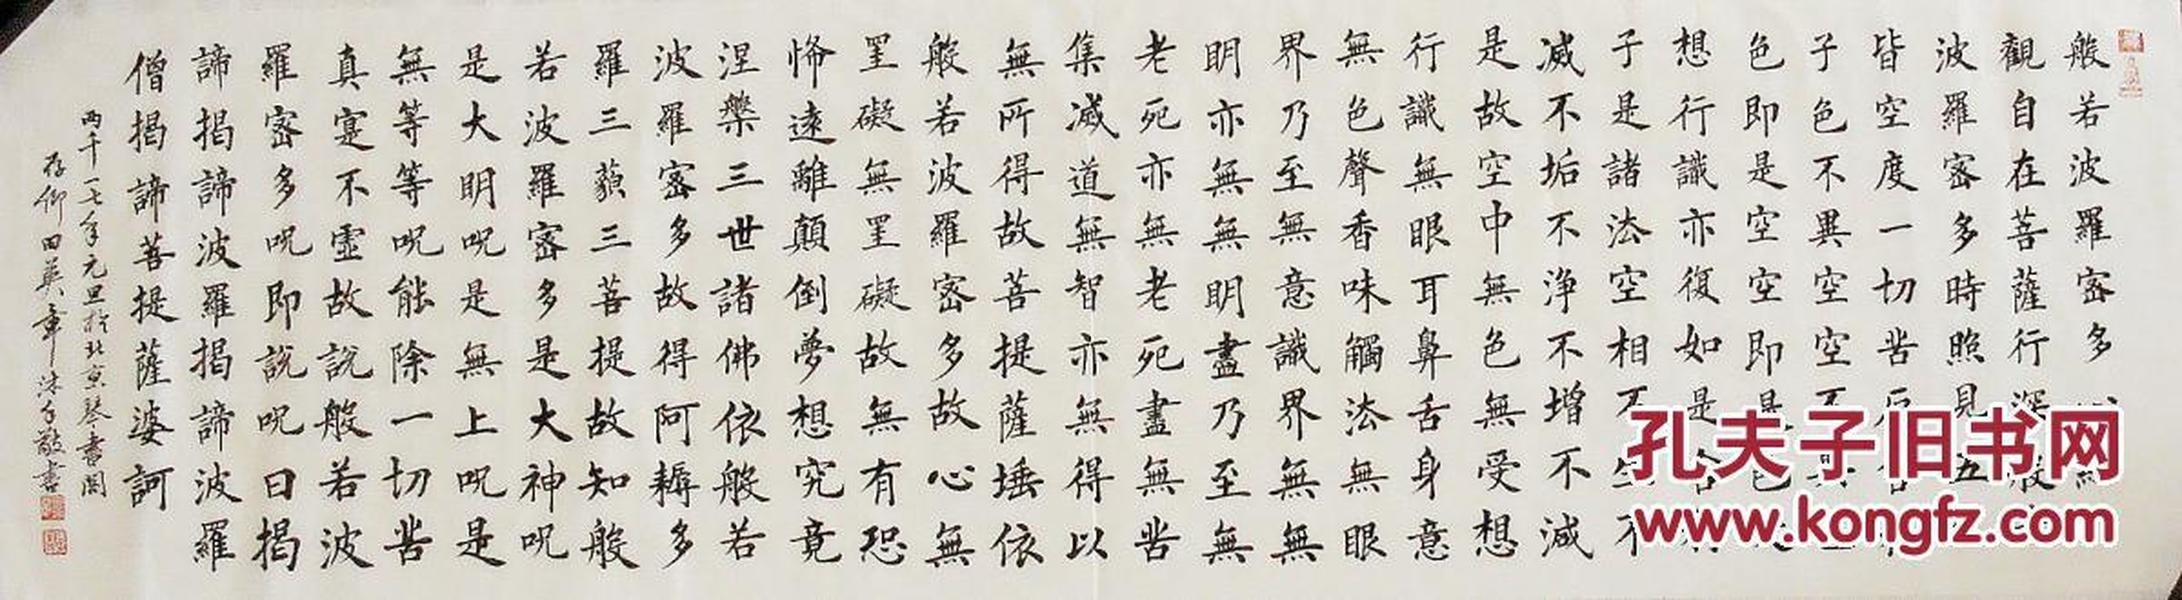 般若波羅密多心經
觀自在菩薩行深般
波羅密多時照見五
皆空度一切苦厄舍
子色不異空空不異
色即是空空即是色
想行識亦復如是舍
子是諸法空相不生不
滅不垢不淨不增不減
是故空中無色無受想
行識無眼耳鼻舌身意
無色聲香味觸法無眼
界乃至無意識界無無
明亦無無明盡乃至無
老死亦無老死盡無苦
集滅道無智亦無得以
無所得故菩提薩埵依
般若波羅密多故心無
罣礙無罣礙故無有恐
怖遠離顛倒夢想究竟
涅槃三世諸佛依般若
波羅密多故得阿耨多
羅三藐三菩提故知般
若波羅密多是大神呪
是大明呪是無上呪是
無等等呪能除一切苦
真實不虛故說般若波
羅密多呪即說呪曰揭
諦揭諦波羅揭諦波羅
僧揭諦菩提薩婆訶
兩千一七年元旦於北京琴書閣
存仰田英章沐手敬書
孔夫子旧书网
www.kongfz.com